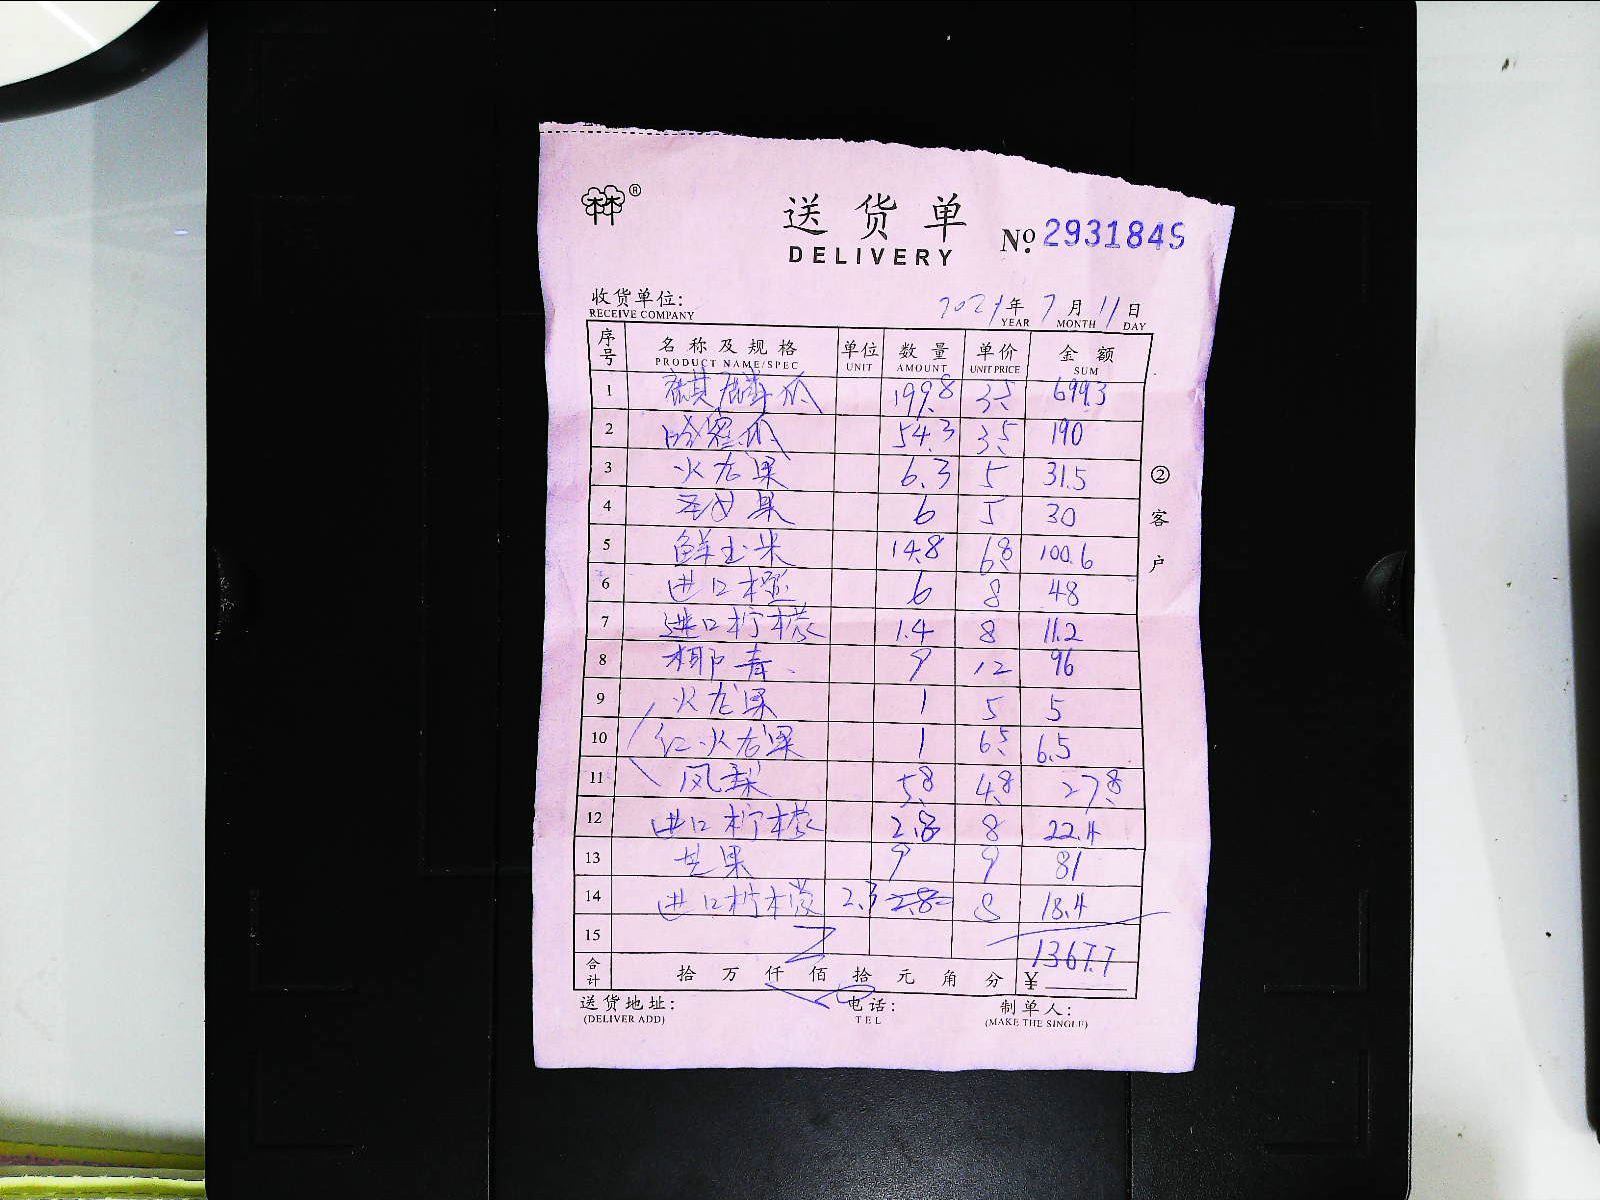 林®
送货单
DELIVERY
No 2931845
收货单位: 2021年 7月 11日
RECEIVE COMPANY YEAR MONTH DAY
序号 名称及规格 单位 数量 单价 金额
PRODUCT NAME/SPEC UNIT AMOUNT UNIT PRICE SUM
1 麒麟瓜 199.8 3.5 699.3
2 哈密瓜 54.3 3.5 190
3 火龙果 6.3 5 31.5
4 圣女果 6 5 30
5 鲜玉米 14.8 6.8 100.6
6 进口橙 6 8 48
7 进口柠檬 1.4 8 11.2
8 椰青 9 12 96
9 火龙果 1 5 5
10 红火龙果 1 6.5 6.5
11 凤梨 5.8 4.8 27.8
12 进口柠檬 2.8 8 22.4
13 芒果 9 9 81
14 进口柠檬 2.3 2.8 8 18.4
15 1367.7
合计 拾 万 仟 佰 拾 元 角 分 ¥
送货地址: 电话: 制单人:
(DELIVER ADD) TEL (MAKE THE SINGLE)
②客户